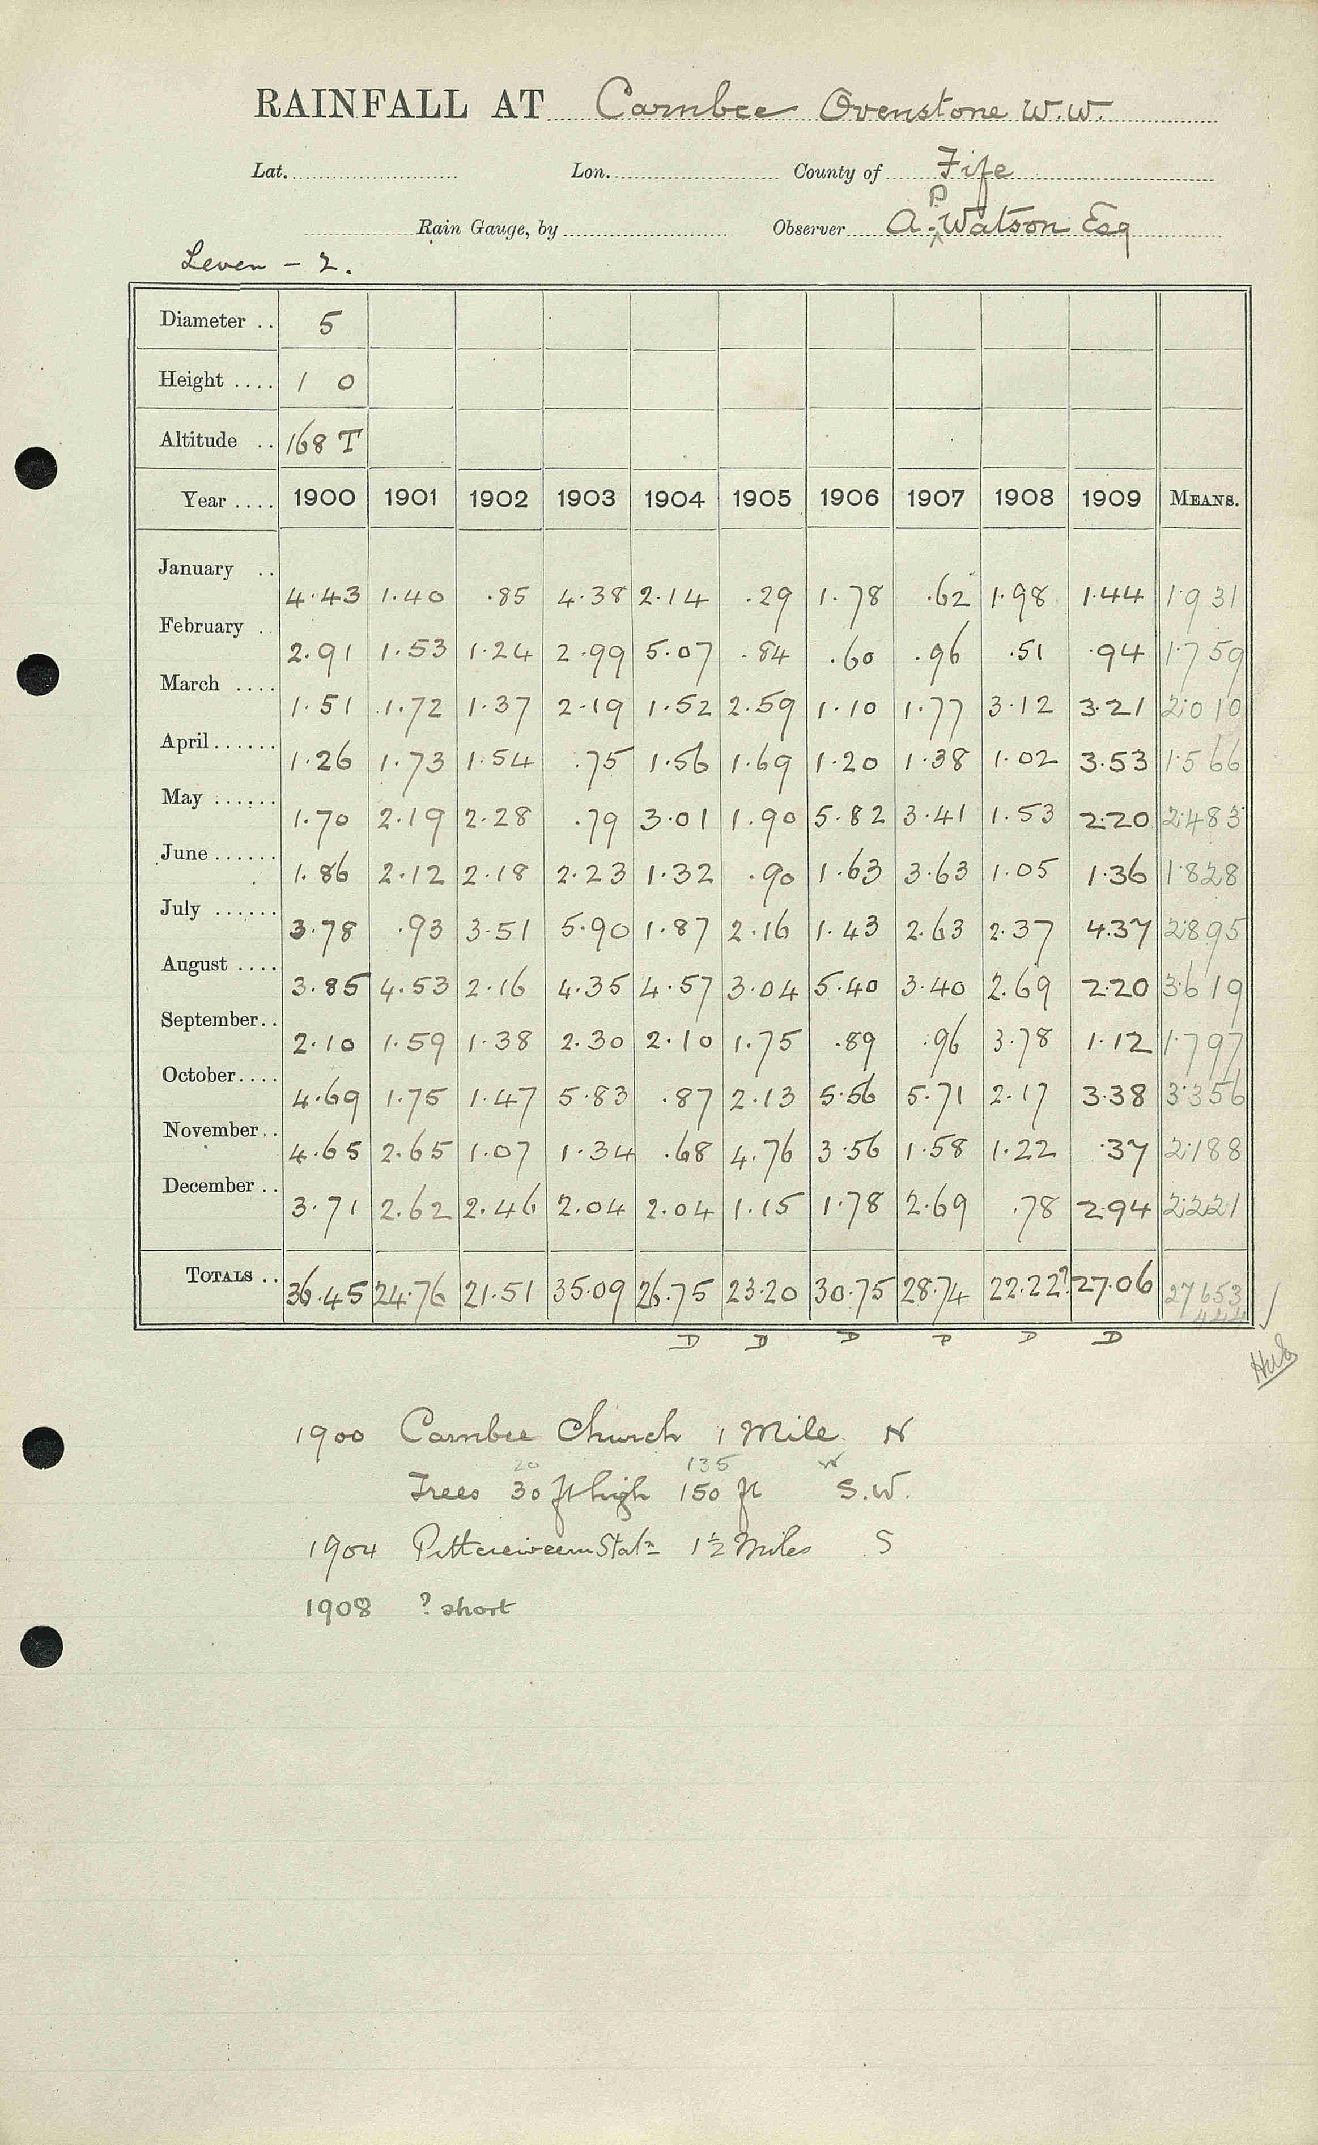 RAINFALL AT Carnbee Ovenstone W.W.
Lat. Lon. County of Fife
P
Rain Gauge, by Observer A. ^ Watson Esq
Leven - 2.
Diameter .. 5
Height .... 1 0
Altitude .. 168 T
Year .... 1900 1901 1902 1903 1904 1905 1906 1907 1908 1909 MEANS.
January .. 4.43 1.40 .85 4.38 2.14 .29 1.78 .62 1.98 1.44 1.931
February .. 2.91 1.53 1.24 2.99 5.07 .84 .60 .96 .51 .94 1.759
March .... 1.51 1.72 1.37 2.19 1.52 2.59 1.10 1.77 3.12 3.21 2.010
April...... 1.26 1.73 1.54 .75 1.56 1.69 1.20 1.38 1.02 3.53 1.566
May ...... 1.70 2.19 2.28 .79 3.01 1.90 5.82 3.41 1.53 2.20 2.483
June...... 1.86 2.12 2.18 2.23 1.32 .90 1.63 3.63 1.05 1.36 1.828
July ...... 3.78 .93 3.51 5.90 1.87 2.16 1.43 2.63 2.37 4.37 2.895
August .... 3.85 4.53 2.16 4.35 4.57 3.04 5.40 3.40 2.69 2.20 3.619
September.. 2.10 1.59 1.38 2.30 2.10 1.75 .89 .96 3.78 1.12 1.797
October.... 4.69 1.75 1.47 5.83 .87 2.13 5.56 5.71 2.17 3.38 3.356
November.. 4.65 2.65 1.07 1.34 .68 4.76 3.56 1.58 1.22 .37 2.188
December .. 3.71 2.62 2.46 2.04 2.04 1.15 1.78 2.69 .78 2.94 2.221
TOTALS .. 36.45 24.76 21.51 35.09 26.75 23.20 30.75 28.74 22.22? 27.06 27.653
D D D D D D
1900 Carnbee Church 1 Mile N
20 135 W
Trees 30 ft high 150 ft S.W.
1904 Pittenweem Statn 1½ Miles S
1908 ? short